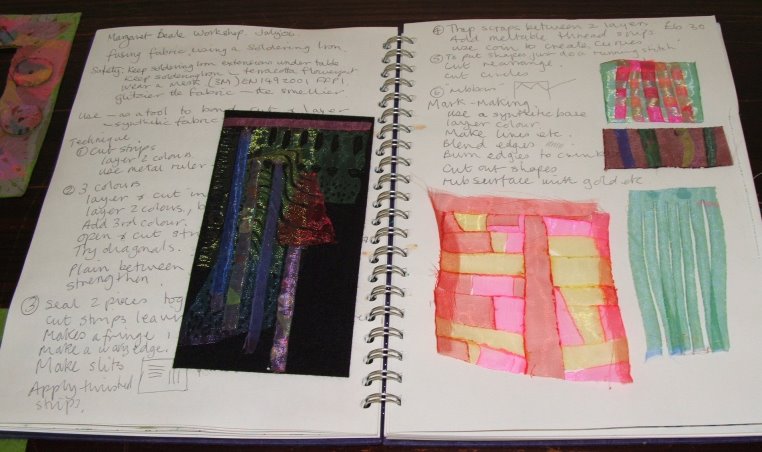 Margaret Beale Workshop.
fusing fabric using a Soldering Iron.
Safety: Keep soldering iron extensions under table
Keep soldering iron in terracotta flowerpot
wear a mask (3M) EN149:2001 FFP1
glitzier the fabric — the smellier
Use — as a tool to bond, cut & layer
— synthetic fabric
Technique
① Cut strips
layer 2 colours
use metal ruler
② 3 colours
layer & cut in
layer 2 colours,
Add 3rd colour
open & cut
Try diagonals.
Plain between
strengthen.
③ Seal 2 pieces tog
cut strips leavin
Makes a fringe
Make a wavy edge.
Make slits
Apply twisted
strips.
④ Trap scraps between 2 layers
Add meltable thread strips
use coin to create curves
⑤ To put shapes just do a running stitch
Cut rearrange
cut circles
⑥ ribbons
Mark-Making
Use a synthetic base
layer colour
Make lines etc.
Blend edges
Burn edges to crinkle
Cut out shapes
rub surface with gold etc